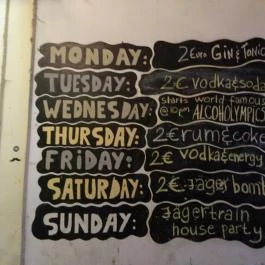 MONDAY: 2 Euro Gin & Tonic
TUESDAY: 2€ vodka & soda
WEDNESDAY: starts @10pm world famous ALCOHOLYMPICS
THURSDAY: 2€ rum & coke
FRiDAY: 2€ vodka & energy
SATURDAY: 2€ Jäger bomb
SUNDAY: Jägertrain
house party